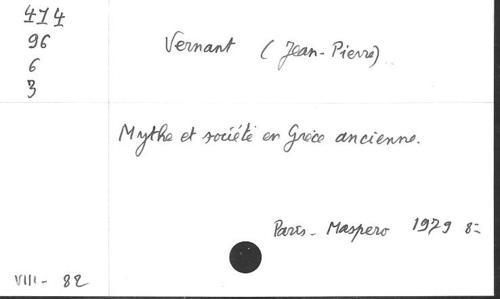 414
96
6
3
Vernant (Jean-Pierre)
Mythe et société en Grèce ancienne.
Paris - Maspero 1979 8=
VIII - 82